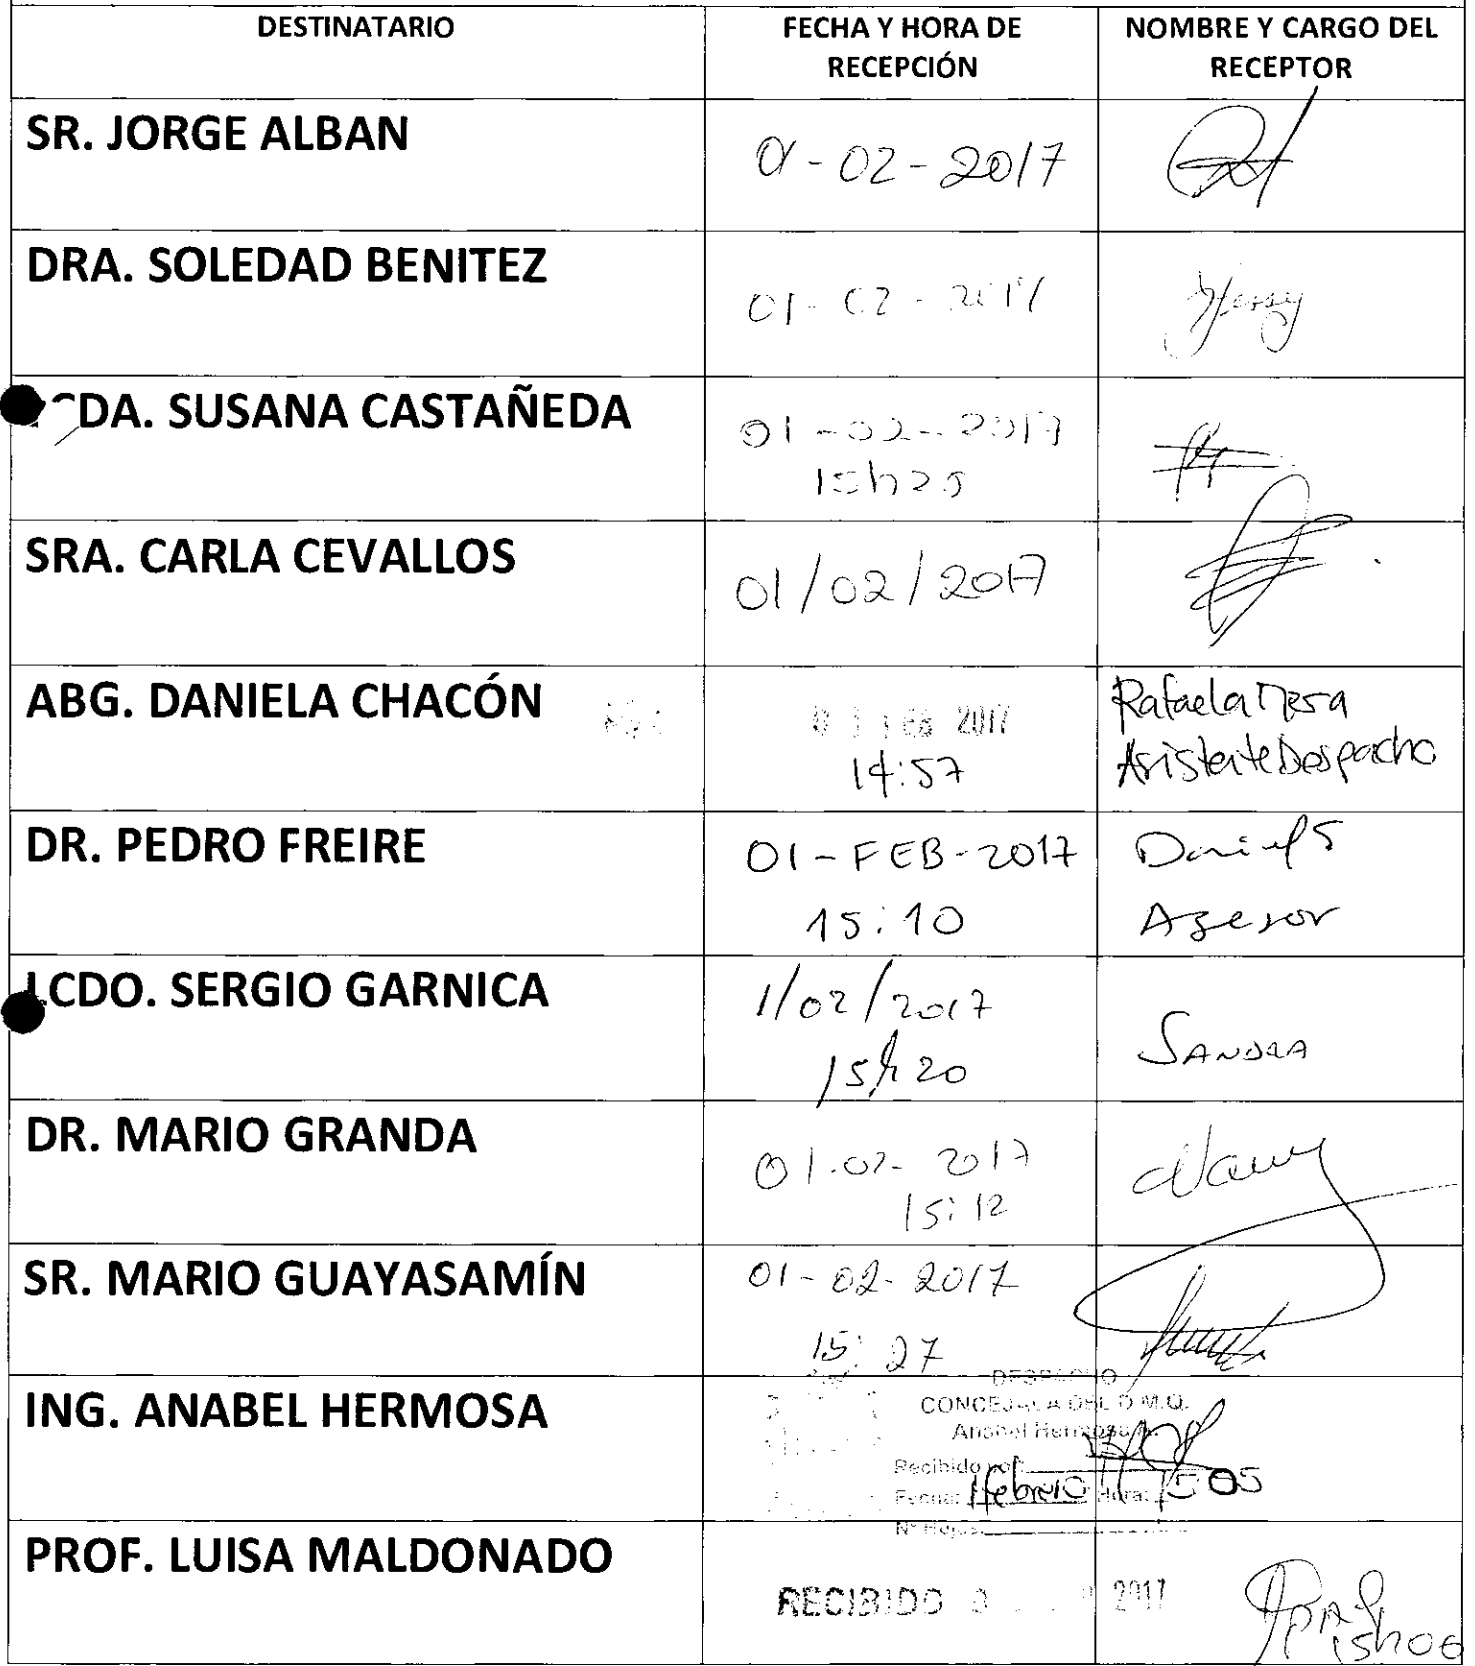 DESTINATARIO
FECHA Y HORA DE RECEPCIÓN
NOMBRE Y CARGO DEL RECEPTOR
SR. JORGE ALBAN
01-02-2017
DRA. SOLEDAD BENITEZ
01-02-2017
DA. SUSANA CASTAÑEDA
01-02-2017
15h25
SRA. CARLA CEVALLOS
01/02/2017
ABG. DANIELA CHACÓN
2017
14:57
Rafaela Mesa
Asistente Despacho
DR. PEDRO FREIRE
01-FEB-2017
15:10
Daniel S
Asesor
LCDO. SERGIO GARNICA
1/02/2017
15h20
SANDRA
DR. MARIO GRANDA
01-02-2017
15:12
SR. MARIO GUAYASAMÍN
01-02-2017
15:27
ING. ANABEL HERMOSA
DESPACHO
CONCEJALA DEL D.M.Q.
Anabel Hermosa
Recibido por:
Fecha: 1 febrero Hora: 1505
N° Hojas:
PROF. LUISA MALDONADO
RECIBIDO
2017
15h06